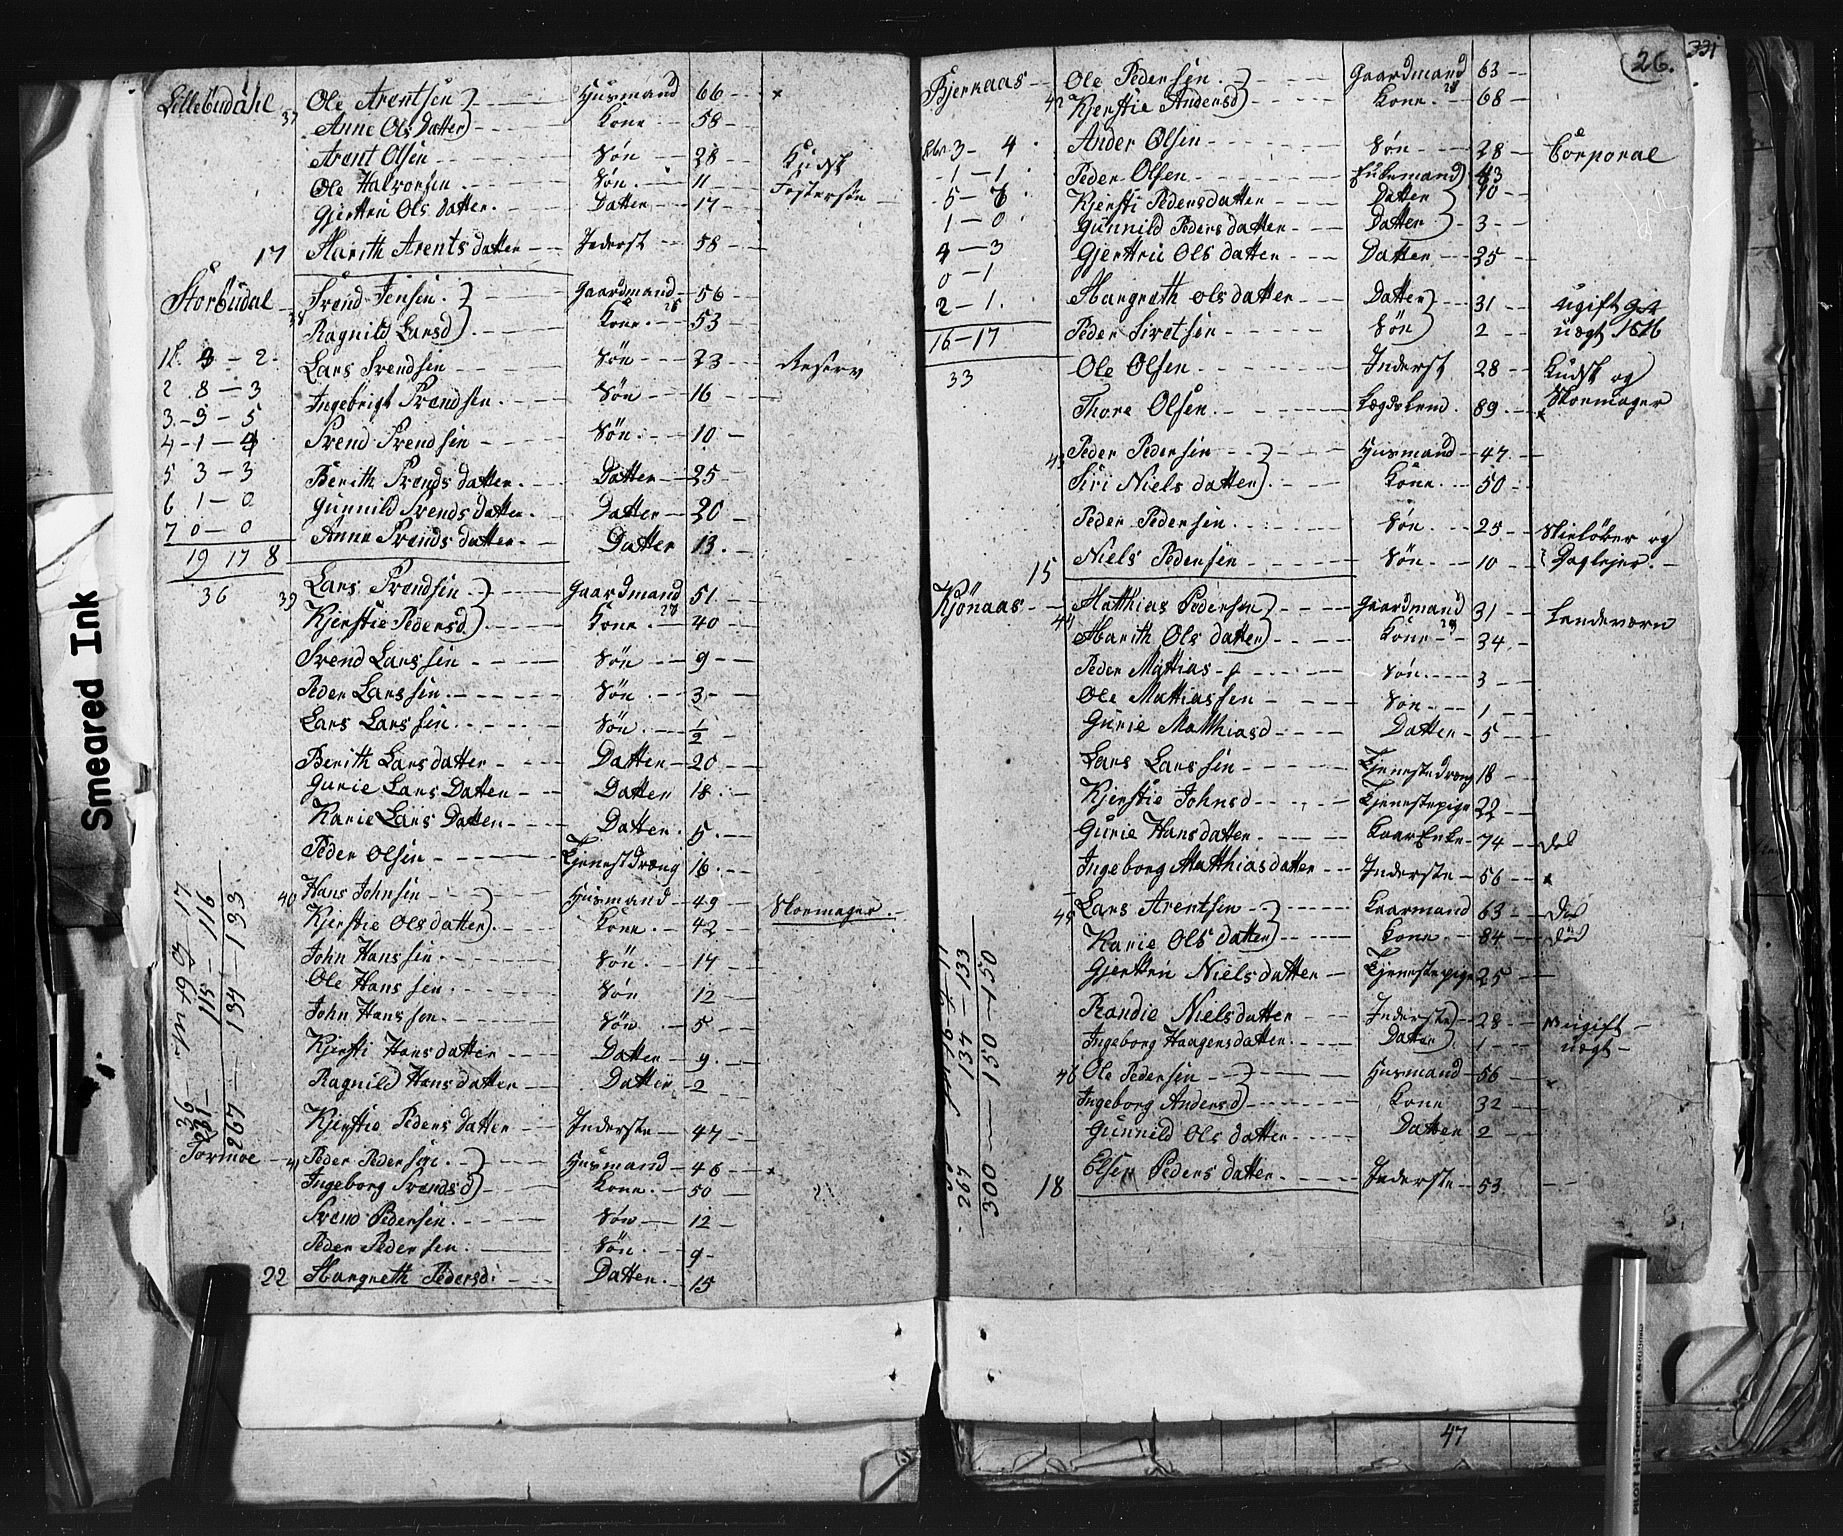 Lillebudahl 37 Ole Arentsen Husmand 66
Anne Ols Datter Kone 58
Arent Olsen Søn 28 Kudsk
Ole Halvorsen Søn 11 Fostersøn
Gjertru Ols datter Datter 17
17 Marith Arents datter Inderst 58
Storbudal Svend Jensen Gaardmand 56
Ragnild Larsd Kone 53
Lars Svendsen Søn 23 Reserv
Ingebrigt Svendsen Søn 16
Svend Svendsen Søn 10
Berith Svends datter Datter 25
Gunnild Svends datter Datter 20
Anne Svends datter Datter 13
19 17 8
36
39 Lars Svendsen Gaardmand 51
Kjerstie Pedersd Kone 40
Svend Lars sen Søn 9
Peder Lars sen Søn 3
Lars Lars sen Søn 1/2
Berith Lars datter Datter 20
Gurie Lars Datter Datter 18
Karie Lars Datter Datter 5
Peder Olsen Tjenestdræng 16
40 Hans Johnsen Husmand 49 Skomager
Kjerstie Ols datter Kone 42
John Hans sen Søn 17
Ole Hans sen Søn 12
John Hans sen Søn 5
Kjersti Hans datter Datter 9
Ragnild Hans datter Datter 2
Kjerstie Peders Datter Inderste 47
Tormoe 41 Peder Pedersen Husmand 46
Ingeborg Svendsd Kone 50
Svend Pedersen Søn 12
Peder Pedersen Søn 9
22 Margreth Pedersd Datter 15
26. 331
Bjernaas Ole Pedersen Gaardmand 63
42 Kjerstie Andersd Kone 68
Ander Olsen Søn 28 Corporal
Peder Olsen Enkemand 43
Kjersti Pedersdatter Datter 10
Gunnild Peders datter Datter 3
Gjertru Ols datter Datter 25
Margreth Ols datter Datter 31 ugift
Peder Sivertsen Søn 2 uægt
16-17
33
Ole Olsen Inderst 28 Kudsk og
Thore Olsen Lægdslem 89 Skomager
43 Peder Pedersen Husmand 47
Siri Niels datter Kone 50
Peder Pedersen Søn 25 Skieløber og
15 Niels Pedersen Søn 10 Daglejer
Kjönaas Matthias Pedersen Gaardmand 31 Landeværn
44 Marith Ols datter Kone 34
Peder Mattias Søn 3
Ole Mattias sen Søn 1
Gurie Matthiasd Datter 5
Lars Lars sen Tjenestedreng 18
Kjerstie Johnsd Tjenestepige 22
Gurie Hansdatter Kaar Enke 74 død
Ingeborg Matthiasdatter Inderste 56
45 Lars Arentsen Kaarmand 63 død
Karie Ols datter Kone 84 død
Gjertru Niels datter Tjenestepige 25
Randie Niels datter Inderste 28 ugift
Ingeborg Haagensdatter Datter 1 uægt
46 Ole Pedersen Husmand 56
Ingeborg Andersd Kone 32
Gunnild Ols datter Datter 2
18 Elsen Peders datter Inderste 53
Smeared Ink
47